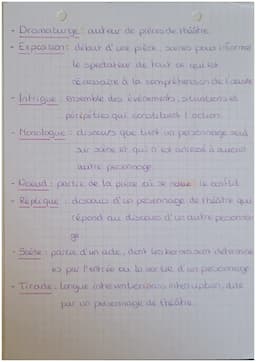 - Dramaturge : auteur de pièces de théâtre
- Exposition : début d'une pièce, scènes pour informer
le spectateur de tout ce qui est
nécessaire à la compréhension de l'œuvre
- Intrigue : ensemble des événements, situations et
péripéties qui constituent l'action.
- Monologue : discours que tient un personnage seul
sur scène et qui n'est adressé à aucun
autre personnage.
- Noeud : partie de la pièce où se noue le conflit.
- Réplique : discours d'un personnage de théâtre qui
répond au discours d'un autre personna
ge
- Scène : partie d'un acte, dont les bornes sont déterminé
es par l'entrée ou la sortie d'un personnage
- Tirade : longue intervention sans interruption, dite
par un personnage de théâtre.